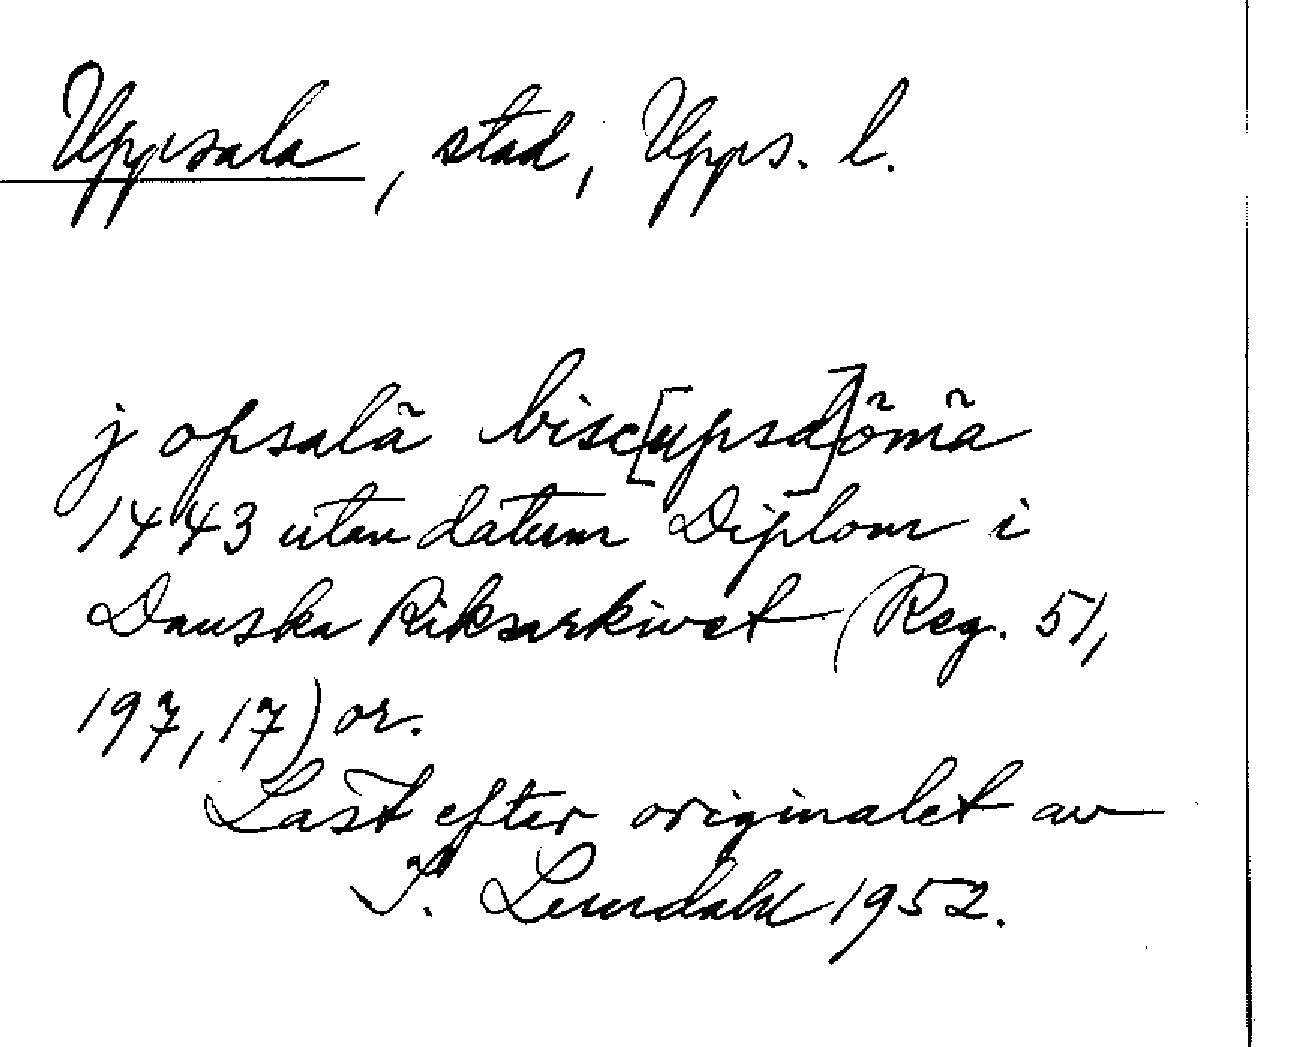 Uppsala, stad, Upps. l.
j opsalã bisc[upsd]õmã
1443 utan datum Diplom i
Danska Riksarkivet (Reg. 51,
197, 17) or.
Läst efter originalet av
I. Lundahl 1952.